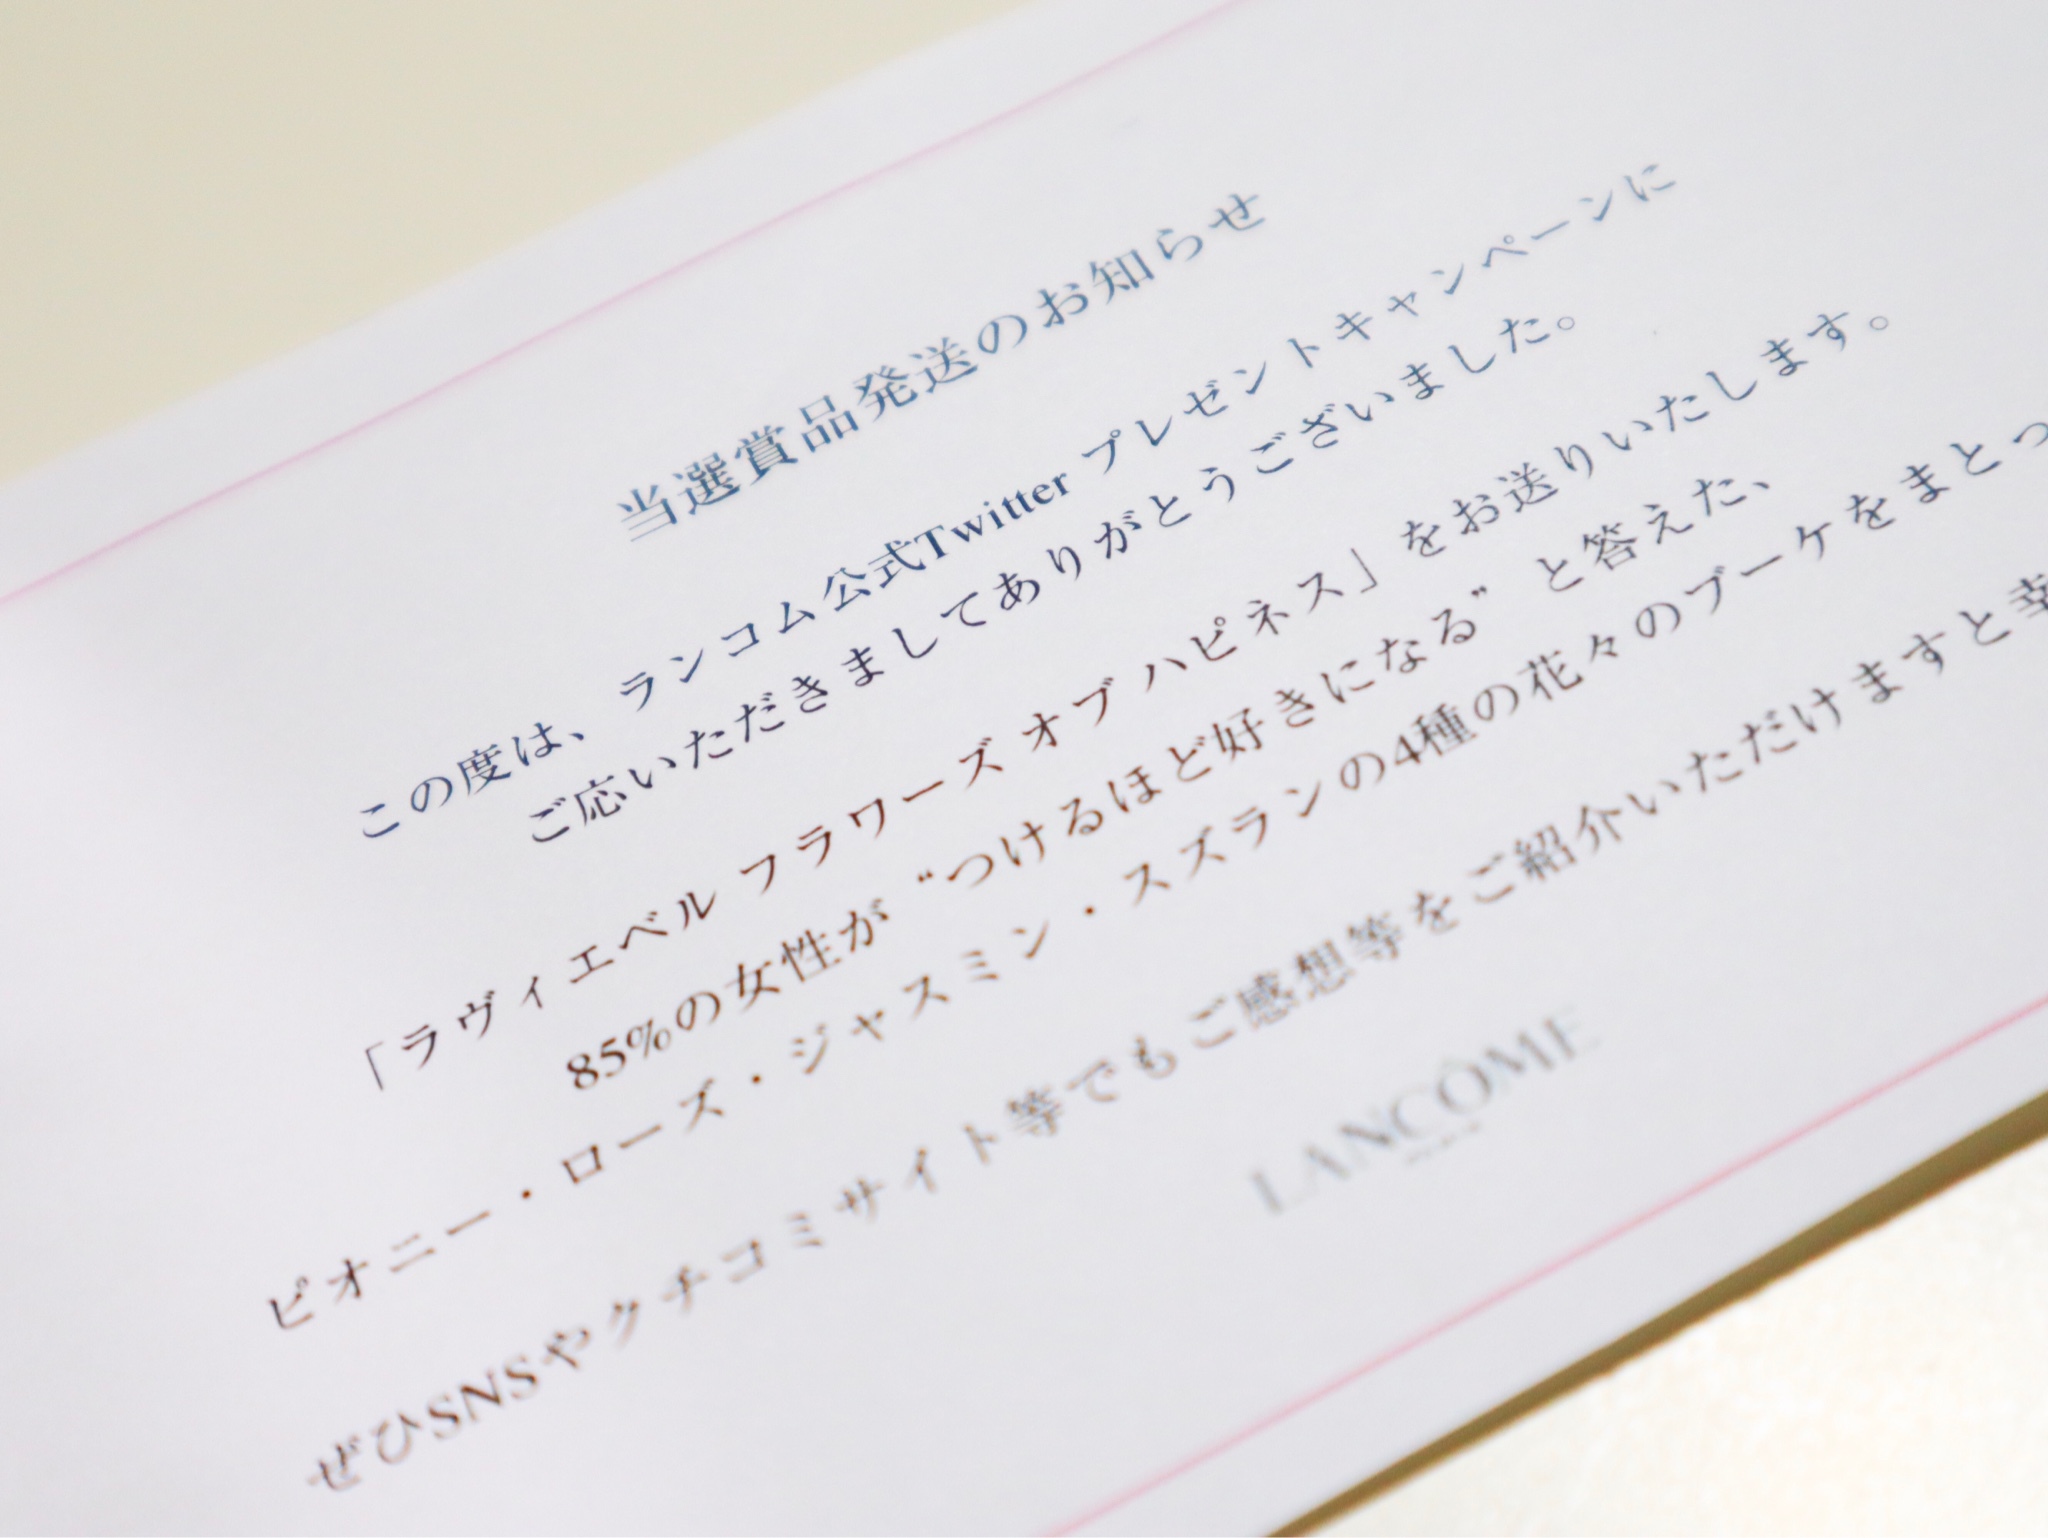 当選賞品発送のお知らせ
この度は、ランコム公式Twitter プレゼントキャンペーンに
ご応いただきましてありがとうございました。
「ラヴィエベル フラワーズ オブ ハピネス」をお送りいたします。
85%の女性が“つけるほど好きになる”と答えた、
ピオニー・ローズ・ジャスミン・スズランの4種の花々のブーケをまとっ
ぜひSNSやクチコミサイト等でもご感想等をご紹介いただけますと幸
LANCÔME